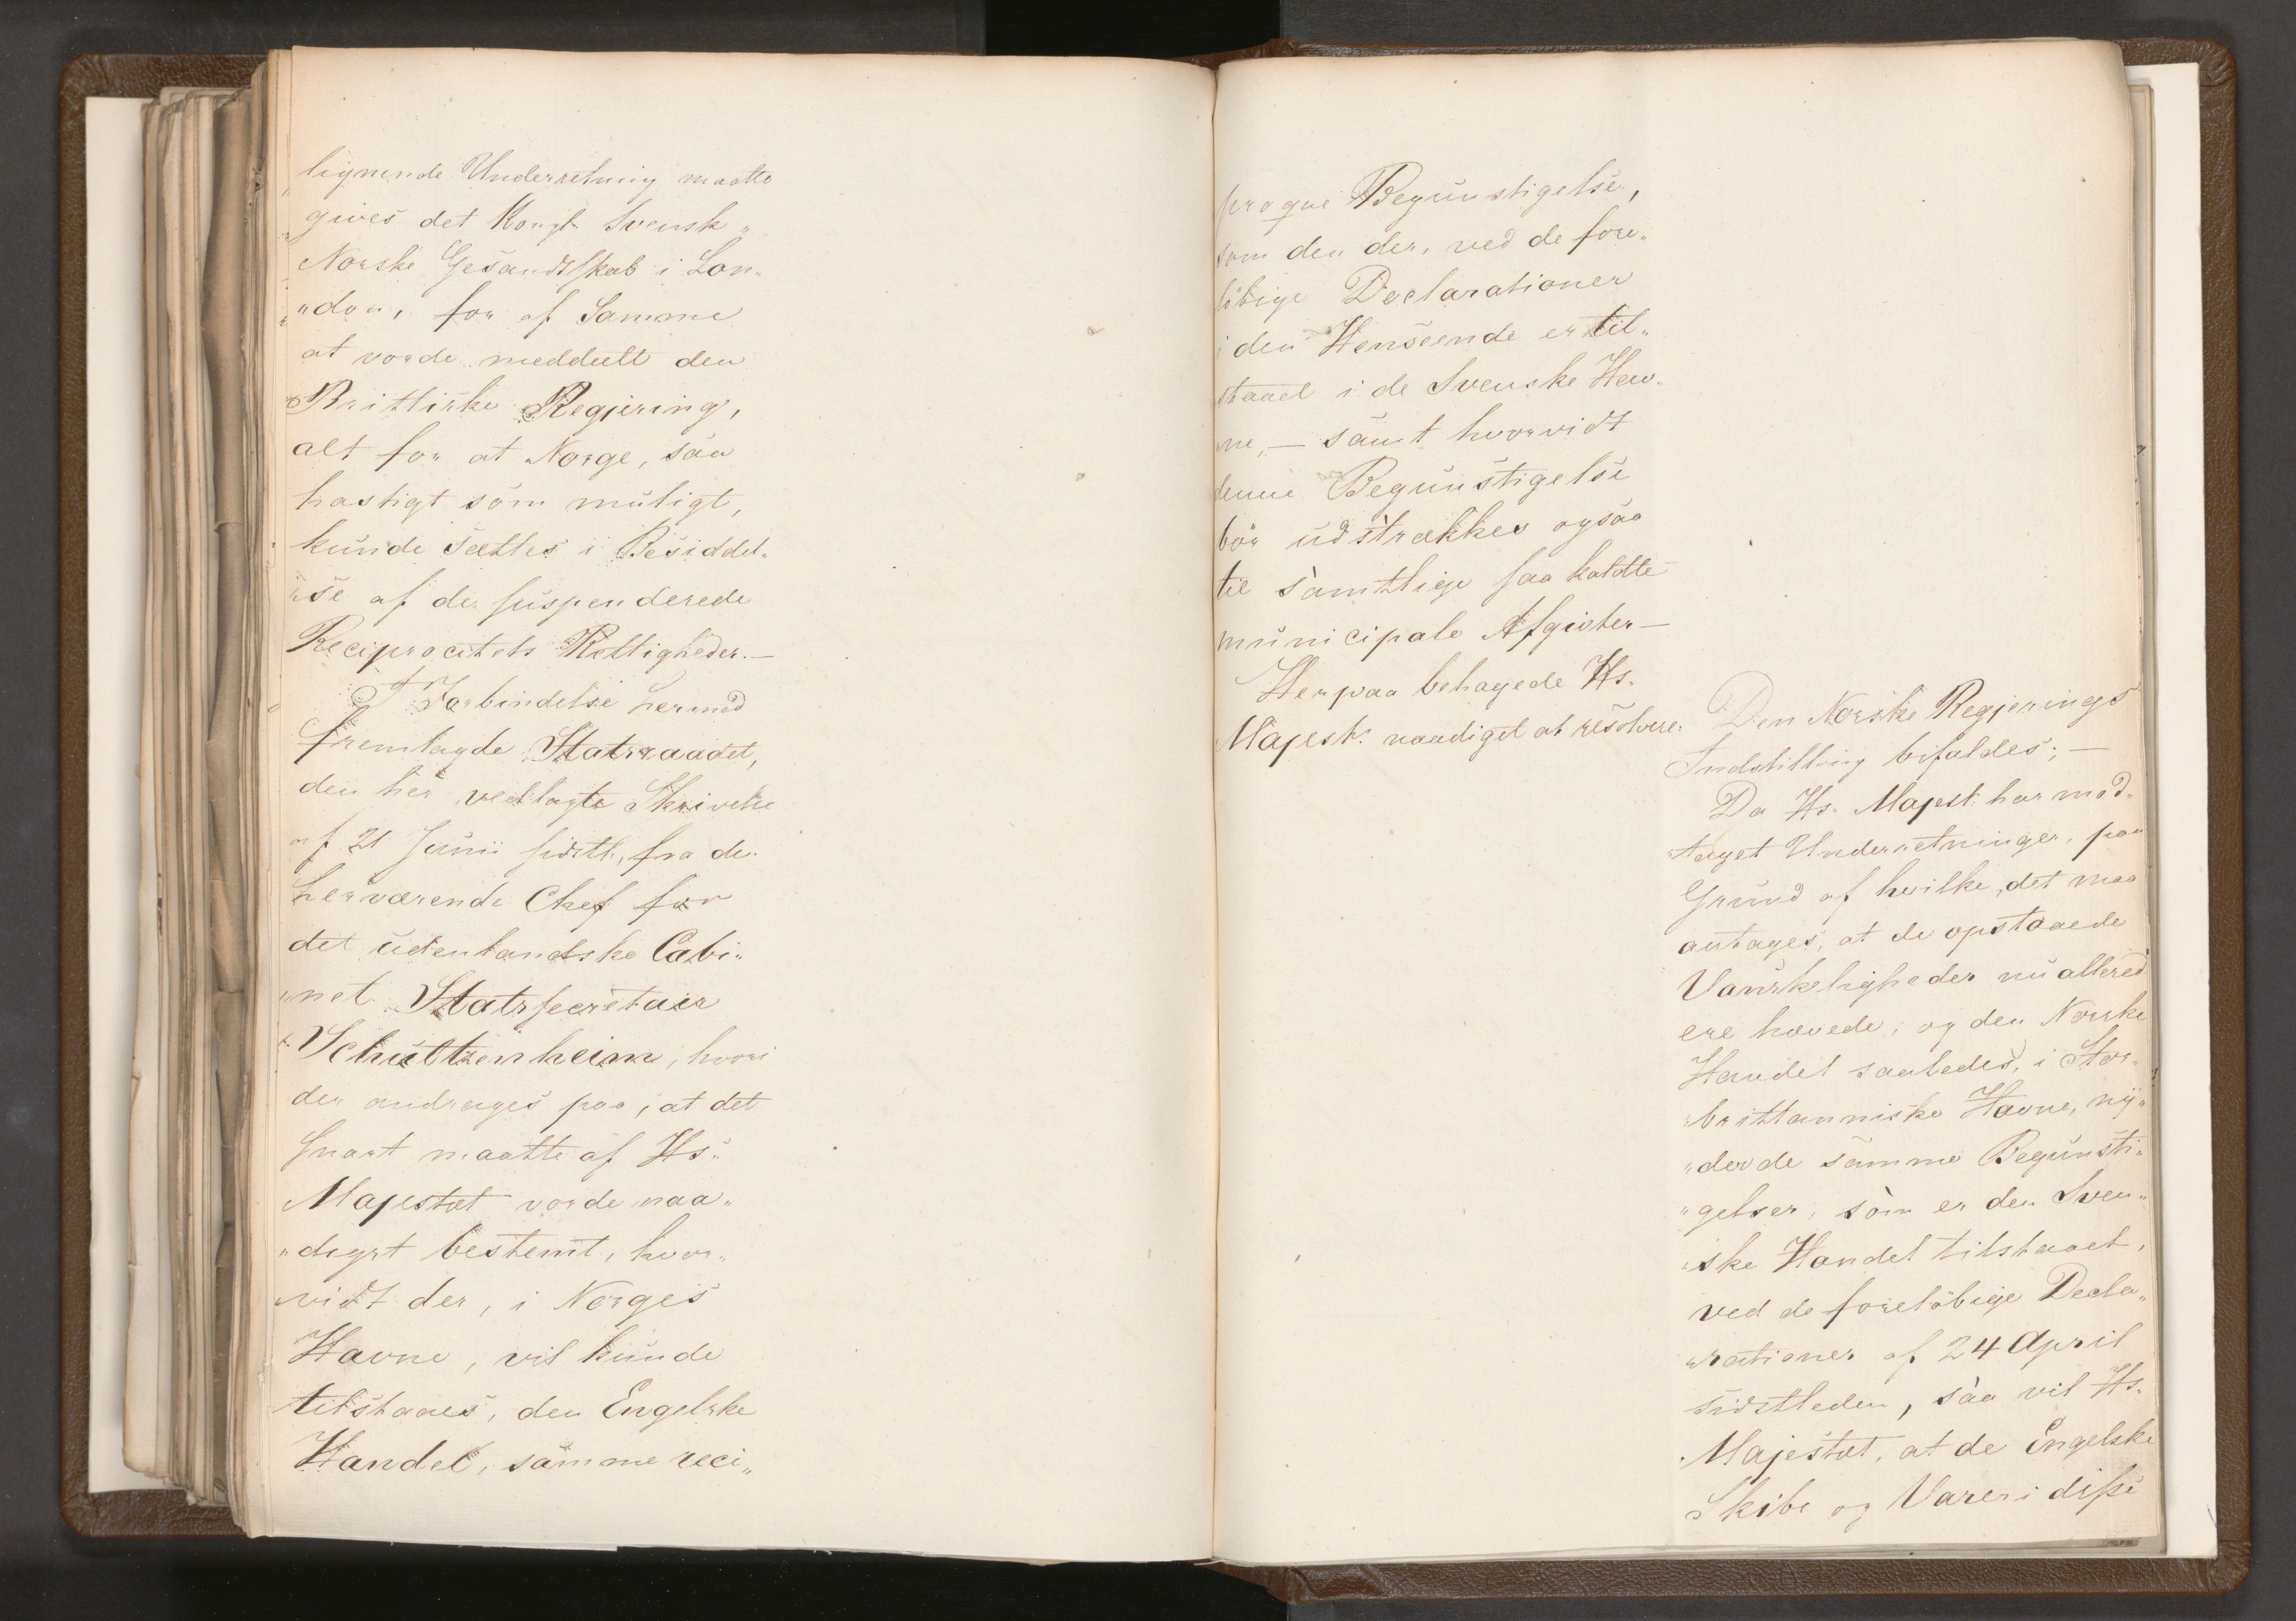 lignende Underretning maatte
gives det Kongl. Svensk„
Norske Gesandtskab i Lon„
„don, for af Samme
at vorde meddeelt den
Brittiske Regjering,
alt for at Norge, saa
hastigt som muligt,
kunde sættes i Besiddel„
„se af de suspenderede
Reciprocitets Rettigheder.—
I Forbindelse hermed
fremlagde Statsraadet,
den her vedlagte Skrivelse
af 21 Junii sidstl., fra den
herværende Chef for
det udenlandske Cabi„
„net Statssecretair
Schultzenheim, hvori
der andrages paa, at det
snart maatte af Hs.
Majestæt vorde naa„
„digst bestemt, hvor„
„vidt der, i Norges
Havne, vil kunde
tilstaaes, den Engelske
Handel, samme reci„
proque Begunstigelse,
som den der, ved de fore„
löbige Declarationer
i den Henseende er til„
staaet i de Svenske Hav„
ne,— samt hvorvidt
denne Begunstigelse
bör udstrækkes ogsaa
til samtlige saa kaldte
municipale Afgivter—
Herpaa behagede Hs.
Majest. naadigst at resolvere:
Den Norske Regjerings
Indstilling bifaldes;—
Da Hs. Majest: har mod„
„taget Underretninger, paa
Grund af hvilke, det maa
antages, at de opstaaede
Vanskeligheder nu allered
ere hævede, og den Norske
Handel saaledes, i Stor„
„brittanniske Havne, ny„
„der de samme Begunsti„
„gelser, som er den Sven„
„ske Handel tilstaaet,
ved de forelöbige Decla„
„rationer af 24 April
sidstleden, saa vil Hs.
Majestæt, at de Engelske
Skibe og Varer i disse